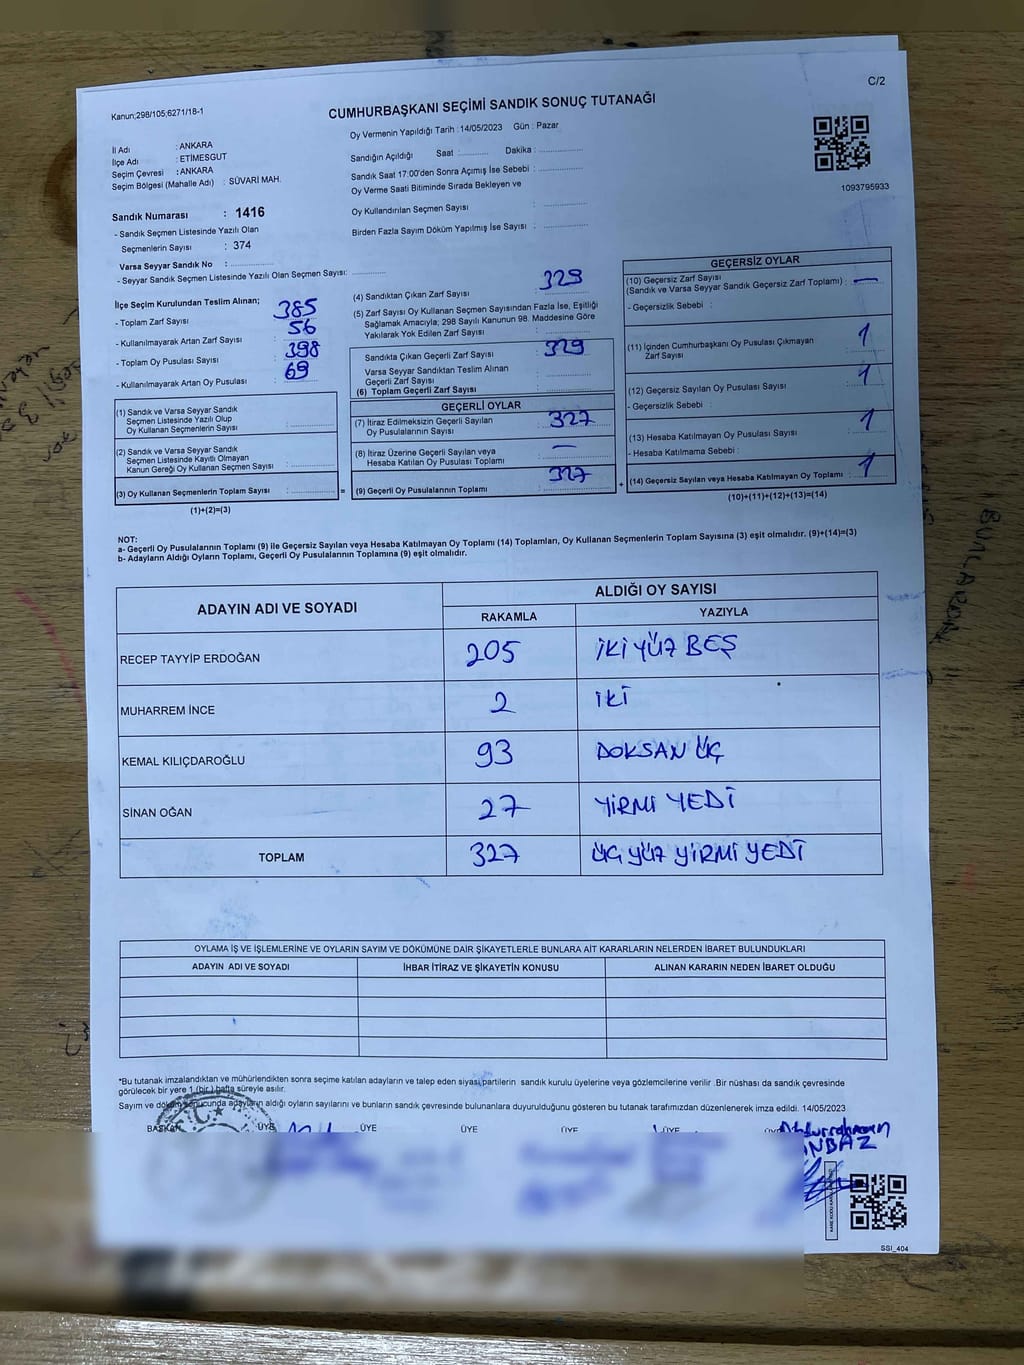 C/2
Kanun;298/105;6271/18-1
CUMHURBAŞKANI SEÇİMİ SANDIK SONUÇ TUTANAĞI
Oy Vermenin Yapıldığı Tarih :14/05/2023 Gün : Pazar
İl Adı : ANKARA
İlçe Adı : ETİMESGUT
Seçim Çevresi : ANKARA
Seçim Bölgesi (Mahalle Adı) : SÜVARİ MAH.
Sandığın Açıldığı Saat : Dakika :
Sandık Saat 17:00'den Sonra Açımış İse Sebebi :
Oy Verme Saati Bitiminde Sırada Bekleyen ve
Oy Kullandırılan Seçmen Sayısı :
Birden Fazla Sayım Döküm Yapılmış İse Sayısı :
1093795933
Sandık Numarası : 1416
- Sandık Seçmen Listesinde Yazılı Olan
Seçmenlerin Sayısı : 374
Varsa Seyyar Sandık No :
- Seyyar Sandık Seçmen Listesinde Yazılı Olan Seçmen Sayısı:
İlçe Seçim Kurulundan Teslim Alınan;
- Toplam Zarf Sayısı : 385
- Kullanılmayarak Artan Zarf Sayısı : 56
- Toplam Oy Pusulası Sayısı : 398
- Kullanılmayarak Artan Oy Pusulası : 69
(1) Sandık ve Varsa Seyyar Sandık
Seçmen Listesinde Yazılı Olup
Oy Kullanan Seçmenlerin Sayısı :
(2) Sandık ve Varsa Seyyar Sandık
Seçmen Listesinde Kayıtlı Olmayan
Kanun Gereği Oy Kullanan Seçmen Sayısı :
(3) Oy Kullanan Seçmenlerin Toplam Sayısı :
(1)+(2)=(3)
(4) Sandıktan Çıkan Zarf Sayısı : 329
(5) Zarf Sayısı Oy Kullanan Seçmen Sayısından Fazla İse, Eşitliği
Sağlamak Amacıyla; 298 Sayılı Kanunun 98. Maddesine Göre
Yakılarak Yok Edilen Zarf Sayısı :
Sandıkta Çıkan Geçerli Zarf Sayısı : 329
Varsa Seyyar Sandıktan Teslim Alınan
Geçerli Zarf Sayısı :
(6) Toplam Geçerli Zarf Sayısı :
GEÇERLİ OYLAR
(7) İtiraz Edilmeksizin Geçerli Sayılan
Oy Pusulalarının Sayısı : 327
(8) İtiraz Üzerine Geçerli Sayılan veya
Hesaba Katılan Oy Pusulası Toplamı : —
(9) Geçerli Oy Pusulalarının Toplamı : 327
=
+
GEÇERSİZ OYLAR
(10) Geçersiz Zarf Sayısı
(Sandık ve Varsa Seyyar Sandık Geçersiz Zarf Toplamı) : —
- Geçersizlik Sebebi :
(11) İçinden Cumhurbaşkanı Oy Pusulası Çıkmayan
Zarf Sayısı : 1
(12) Geçersiz Sayılan Oy Pusulası Sayısı : 1
- Geçersizlik Sebebi :
(13) Hesaba Katılmayan Oy Pusulası Sayısı : 1
- Hesaba Katılmama Sebebi :
(14) Geçersiz Sayılan veya Hesaba Katılmayan Oy Toplamı : 1
(10)+(11)+(12)+(13)=(14)
NOT:
a- Geçerli Oy Pusulalarının Toplamı (9) ile Geçersiz Sayılan veya Hesaba Katılmayan Oy Toplamı (14) Toplamları, Oy Kullanan Seçmenlerin Toplam Sayısına (3) eşit olmalıdır. (9)+(14)=(3)
b- Adayların Aldığı Oyların Toplamı, Geçerli Oy Pusulalarının Toplamına (9) eşit olmalıdır.
ADAYIN ADI VE SOYADI
ALDIĞI OY SAYISI
RAKAMLA YAZIYLA
RECEP TAYYİP ERDOĞAN 205 İKİ YÜZ BEŞ
MUHARREM İNCE 2 İKİ
KEMAL KILIÇDAROĞLU 93 DOKSAN ÜÇ
SİNAN OĞAN 27 YİRMİ YEDİ
TOPLAM 327 ÜÇ YÜZ YİRMİ YEDİ
OYLAMA İŞ VE İŞLEMLERİNE VE OYLARIN SAYIM VE DÖKÜMÜNE DAİR ŞİKAYETLERLE BUNLARA AİT KARARLARIN NELERDEN İBARET BULUNDUKLARI
ADAYIN ADI VE SOYADI İHBAR İTİRAZ VE ŞİKAYETİN KONUSU ALINAN KARARIN NEDEN İBARET OLDUĞU
*Bu tutanak imzalandıktan ve mühürlendikten sonra seçime katılan adayların ve talep eden siyasi partilerin sandık kurulu üyelerine veya gözlemcilerine verilir .Bir nüshası da sandık çevresinde
görülecek bir yere 1 (bir ) hafta süreyle asılır.
Sayım ve döküm sonucunda adayların aldığı oyların sayılarını ve bunların sandık çevresinde bulunanlara duyurulduğunu gösteren bu tutanak tarafımızdan düzenlenerek imza edildi. 14/05/2023
BAŞKAN ÜYE ÜYE ÜYE ÜYE ÜYE
Abdurrahman
SSI_404